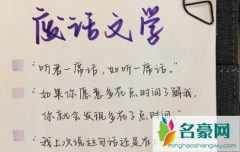 废话文学
"听君一席话，如听一席话。"
如果你愿意多花点时间了解我，
你就会发现多花了点时间。
"我上次说这句话还是在
名豪网
mh.cc